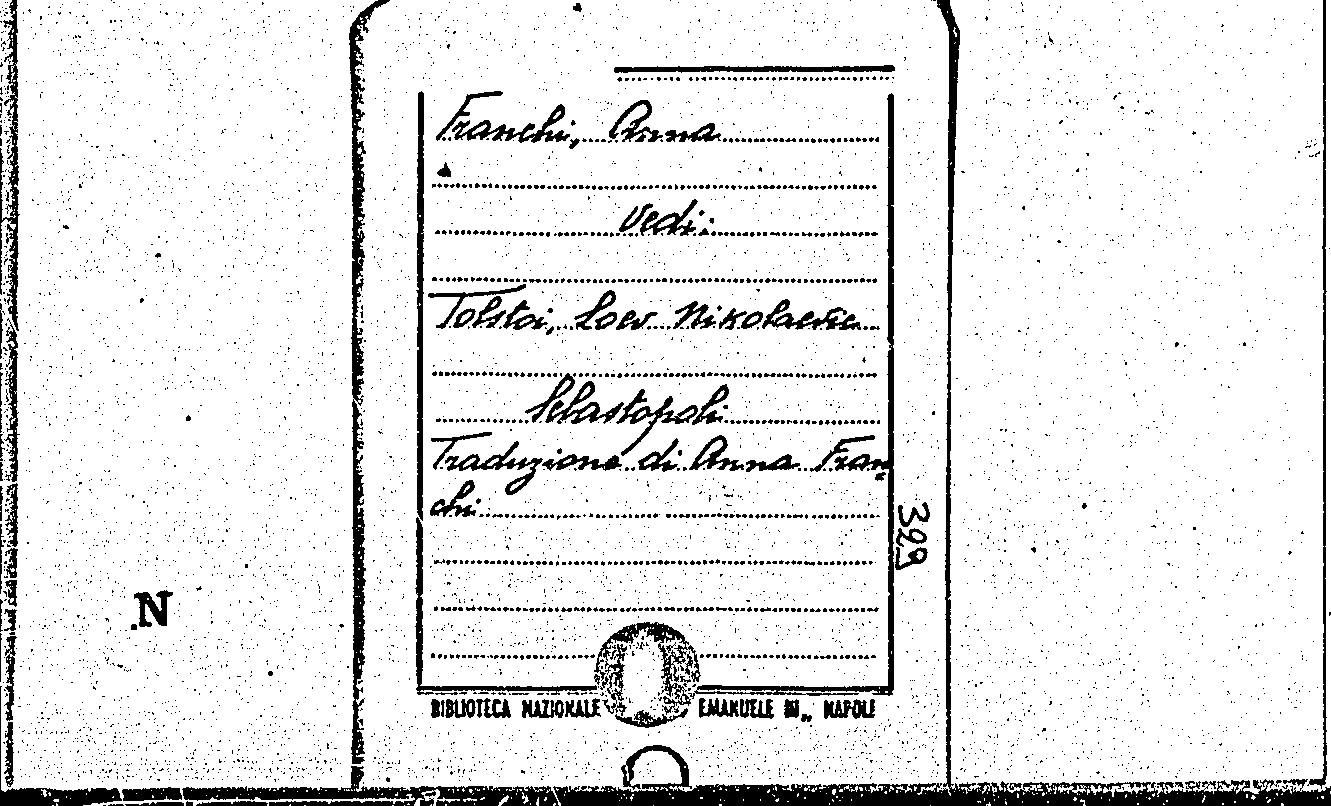 Franchi, Anna
Vedi:
Tolstoi, Loev Nikolaevic
Sebastopoli
Traduzione di Anna Fran=
chi
399
N
BIBLIOTECA NAZIONALE EMANUELE III„ NAPOLI